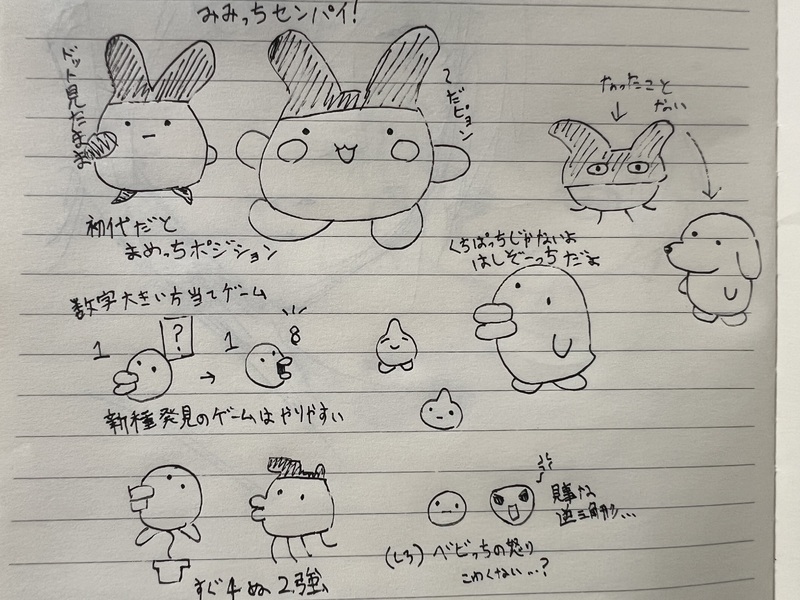 みみっちセンパイ!
ドット見たまま
〜だピョン
なったこと
ない
初代だと
まめっちポジション
くちぱっちじゃないよ
はしぞーっちだよ
数字大きい方当てゲーム
1
?
1
8
新種発見のゲームはやりやすい
見事な
逆三角形…
(しろ)ベビっちの怒り
こわくない…?
すぐ4ぬ2強